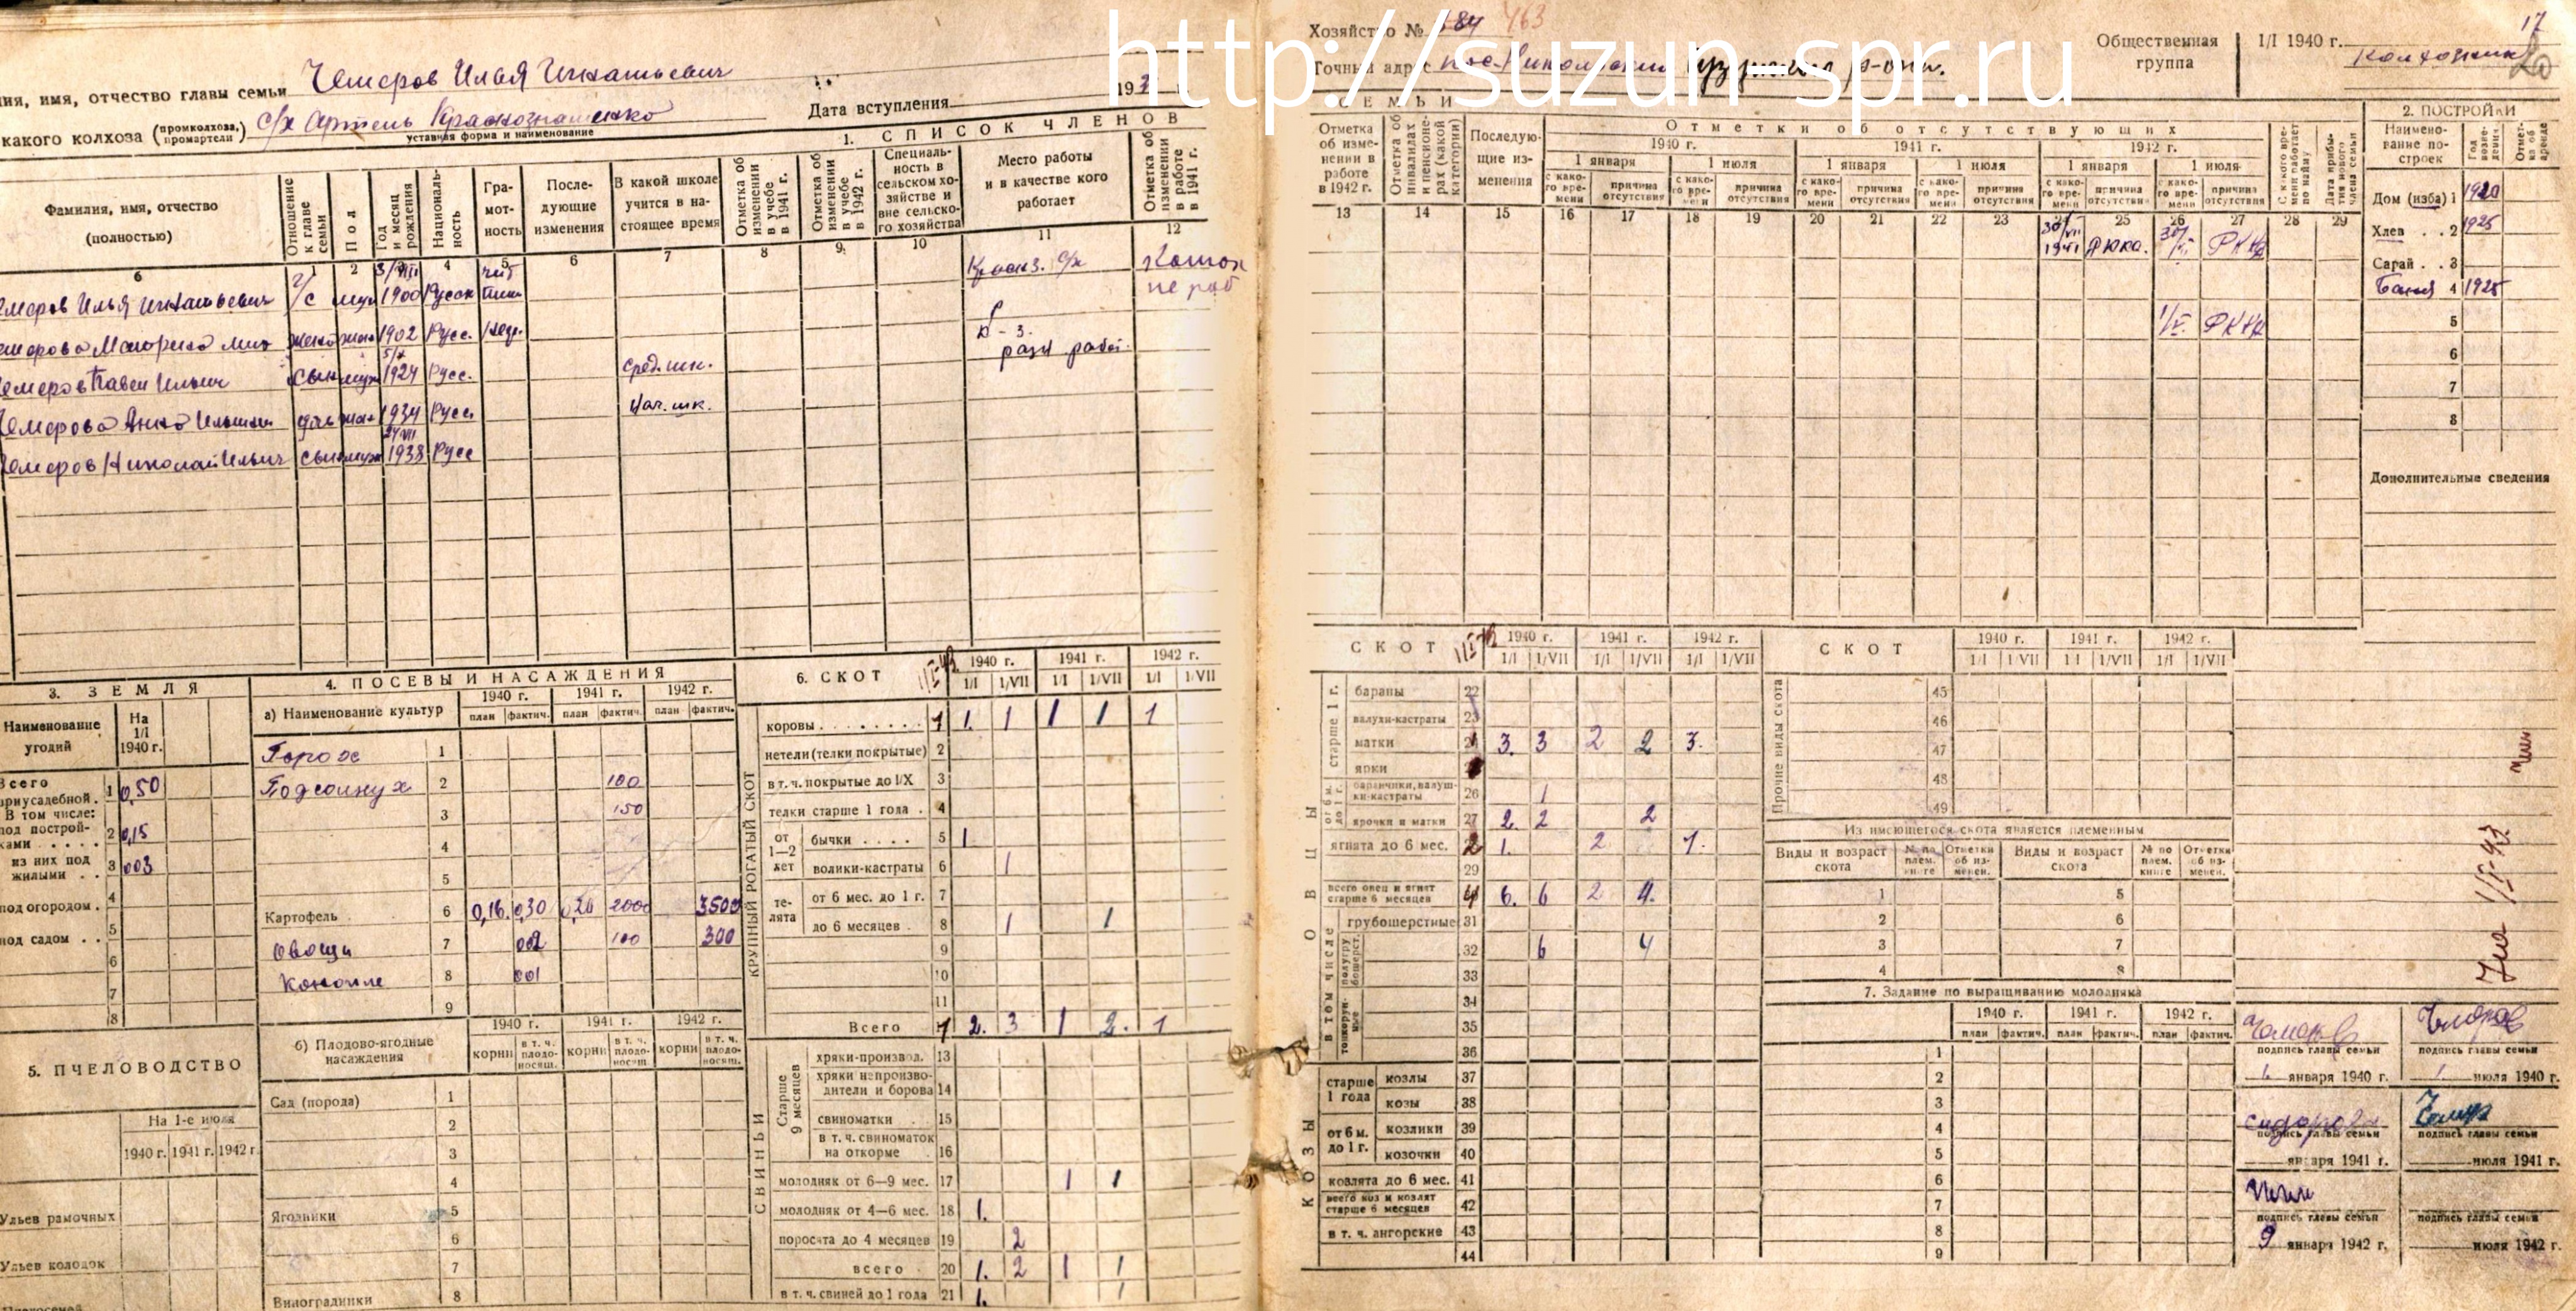 http://suzun-spr.ru
ия, имя, отчество главы семьи Чемеров Илья Игнатьевич
какого колхоза (промколхоза, промартели) с/х Артель Краснознаменка
уставная форма и наименование
Дата вступления 193
1. СПИСОК ЧЛЕНОВ
Фамилия, имя, отчество (полностью)
Отношение к главе семьи
Пол
Год и месяц рождения
Националь-ность
Гра-мот-ность
После-дующие изменения
В какой школе учится в на-стоящее время
Отметка об изменении в учебе в 1941 г.
Отметка об изменении в учебе в 1942 г.
Специаль-ность в сельском хо-зяйстве и вне сельско-го хозяйства
Место работы и в качестве кого работает
Отметка об изменении в работе в 1941 г.
6 1 2 3 4 5 6 7 8 9 10 11 12
емеров Илья Игнатьевич г/с муж 1900 Русск Красн з. с/х
1902 Русс.
разн работ.
Чемеров Павел Ильич сын муж 1924 Русс. сред. шк.
Чемерова Анна дочь 1934 Русс. Нач. шк.
Чемеров Николай Ильич сын муж 24/VII 1938 Русс
Хозяйство № 84 463
Точный адрес р-она.
Общественная группа
1/I 1940 г. Колхозник
17
20
СЕМЬИ
Отметка об изме-нении в работе в 1942 г.
Отметка об инвалидах и пенсионе-рах (какой категории)
Последую-щие из-менения
Отметки об отсутствующих
1940 г. 1941 г. 1942 г.
1 января 1 июля 1 января 1 июля 1 января 1 июля
с како-го вре-мени причина отсутствия
С какого вре-мени работает по найму
Дата прибы-тия нового члена семьи
13 14 15 16 17 18 19 20 21 22 23 24 25 26 27 28 29
1941 РККА
РККА
2. ПОСТРОЙКИ
Наимено-вание по-строек
Год возве-дения
Отмет-ка об аренде
Дом (изба) 1 1920
Хлев . . 2 1925
Сарай . . 3
Баня 4 1925
5
6
7
8
Дополнительные сведения
3. ЗЕМЛЯ
Наименование угодий На 1/I 1940 г.
Всего приусадебной . 1 0,50
В том числе:
под построй-ками . . . . . 2 0,15
из них под жилыми . . 3 003
под огородом . 4
5
под садом . . 6
7
8
5. ПЧЕЛОВОДСТВО
На 1-е июля
1940 г. 1941 г. 1942 г.
Ульев рамочных
Ульев колодок
4. ПОСЕВЫ И НАСАЖДЕНИЯ
а) Наименование культур
1940 г. 1941 г. 1942 г.
план фактич. план фактич. план фактич.
Горох 1
Подсолнух 2 100
3 150
4
5
Картофель 6 0,16. 0,30 0,20 2000 3500
Овощи 7 002 100 300
Конопле 8 001
9
б) Плодово-ягодные насаждения
1940 г. 1941 г. 1942 г.
корни в т. ч. плодо-носящ. корни в т. ч. плодо-носящ. корни в т. ч. плодо-носящ.
Сад (порода) 1
2
3
4
Ягодники 5
6
7
Виноградники 8
6. СКОТ
1940 г. 1941 г. 1942 г.
1/I 1/VII 1/I 1/VII 1/I 1/VII
КРУПНЫЙ РОГАТЫЙ СКОТ
коровы . . . . . . . . 1 1. 1 1 1 1
нетели (телки покрытые) 2
в т. ч. покрытые до 1/X 3
телки старше 1 года . 4
от 1—2 лет
бычки . . . . 5 1.
волики-кастраты 6 1
те-лята
от 6 мес. до 1 г. 7
до 6 месяцев . 8 1 1
9
10
11
Всего 2. 3 1 2. 1
СВИНЬИ
Старше 9 месяцев
хряки-производ. 13
хряки непроизво-дители и борова 14
свиноматки 15
в т. ч. свиноматок на откорме . 16
молодняк от 6—9 мес. 17 1 1
молодняк от 4—6 мес. 18 1.
поросята до 4 месяцев 19 2
всего . 20 1. 2 1 1
в т. ч. свиней до 1 года 21 1. 1
СКОТ
1940 г. 1941 г. 1942 г.
1/I 1/VII 1/I 1/VII 1/I 1/VII
ОВЦЫ
старше 1 г.
бараны 22
валухи-кастраты 23
матки 3. 3 2 2 3.
ярки
от 6 м. до 1 г.
баранчики, валуш-ки-кастраты 26 1
ярочки и матки 27 2. 2 2
ягнята до 6 мес. 1. 2 1.
29
всего овец и ягнят старше 6 месяцев 6. 6 2 4.
в том числе
грубошерстные 31
полугру-бошерст. 32 6 4
33
тонкорун-ные 34
35
36
КОЗЫ
старше 1 года
козлы 37
козы 38
от 6 м. до 1 г.
козлики 39
козочки 40
козлята до 6 мес. 41
всего коз и козлят старше 6 месяцев 42
в т. ч. ангорские 43
44
СКОТ
1940 г. 1941 г. 1942 г.
1/I 1/VII 1/I 1/VII 1/I 1/VII
Прочие виды скота
45
46
47
48
49
Из имеющегося скота является племенным
Виды и возраст скота № по плем. книге Отметки об из-менен. Виды и возраст скота № по плем. книге Отметки об из-менен.
1 5
2 6
3 7
4 8
7. Задание по выращиванию молодняка
1940 г. 1941 г. 1942 г.
план фактич. план фактич. план фактич.
1
2
3
4
5
6
7
8
9
подпись главы семьи подпись главы семьи
1 января 1940 г. 1 июля 1940 г.
подпись главы семьи подпись главы семьи
января 1941 г. июля 1941 г.
подпись главы семьи подпись главы семьи
9 января 1942 г. июля 1942 г.